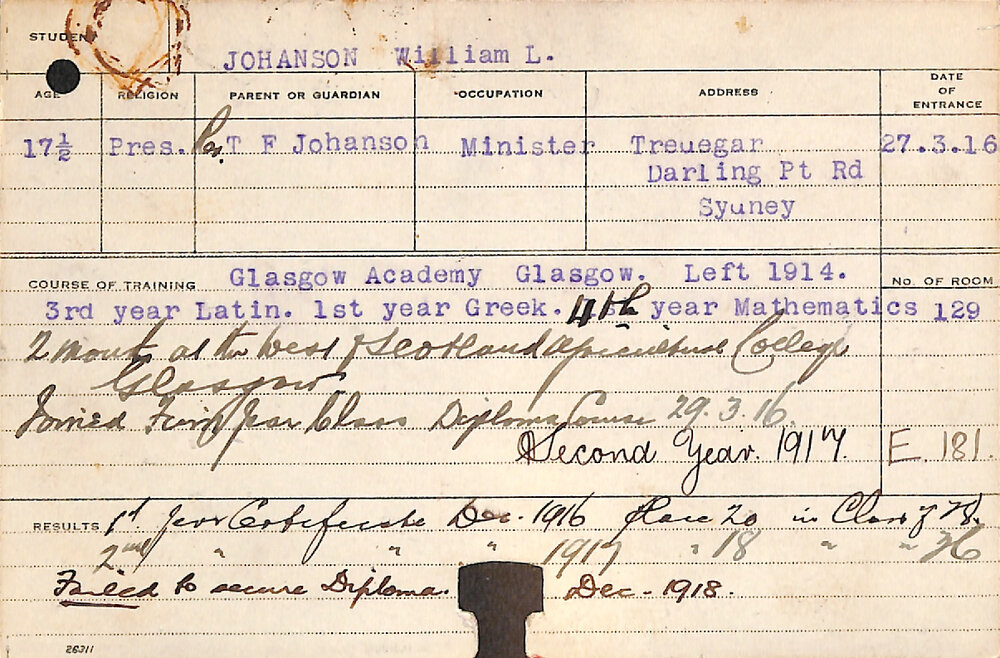 STUDENT JOHANSON William L.
AGE RELIGION PARENT OR GUARDIAN OCCUPATION ADDRESS DATE OF ENTRANCE
17½ Pres. Rev. T F Johanson Minister Treuegar 27.3.16
Darling Pt Rd
Sydney
COURSE OF TRAINING Glasgow Academy Glasgow. Left 1914. No. OF ROOM
3rd year Latin. 1st year Greek. 4th year Mathematics 129
2 months at the West of Scotland Agricultural College
Glasgow.
Joined First Year Class Diploma Course 29.3.16.
Second Year. 1917. E. 181.
RESULTS 1st Year Certificate Dec. 1916 Place 20 in Class of
2nd " " " 1917 " 18 " " 26
Failed to secure Diploma. Dec - 1918.
26311